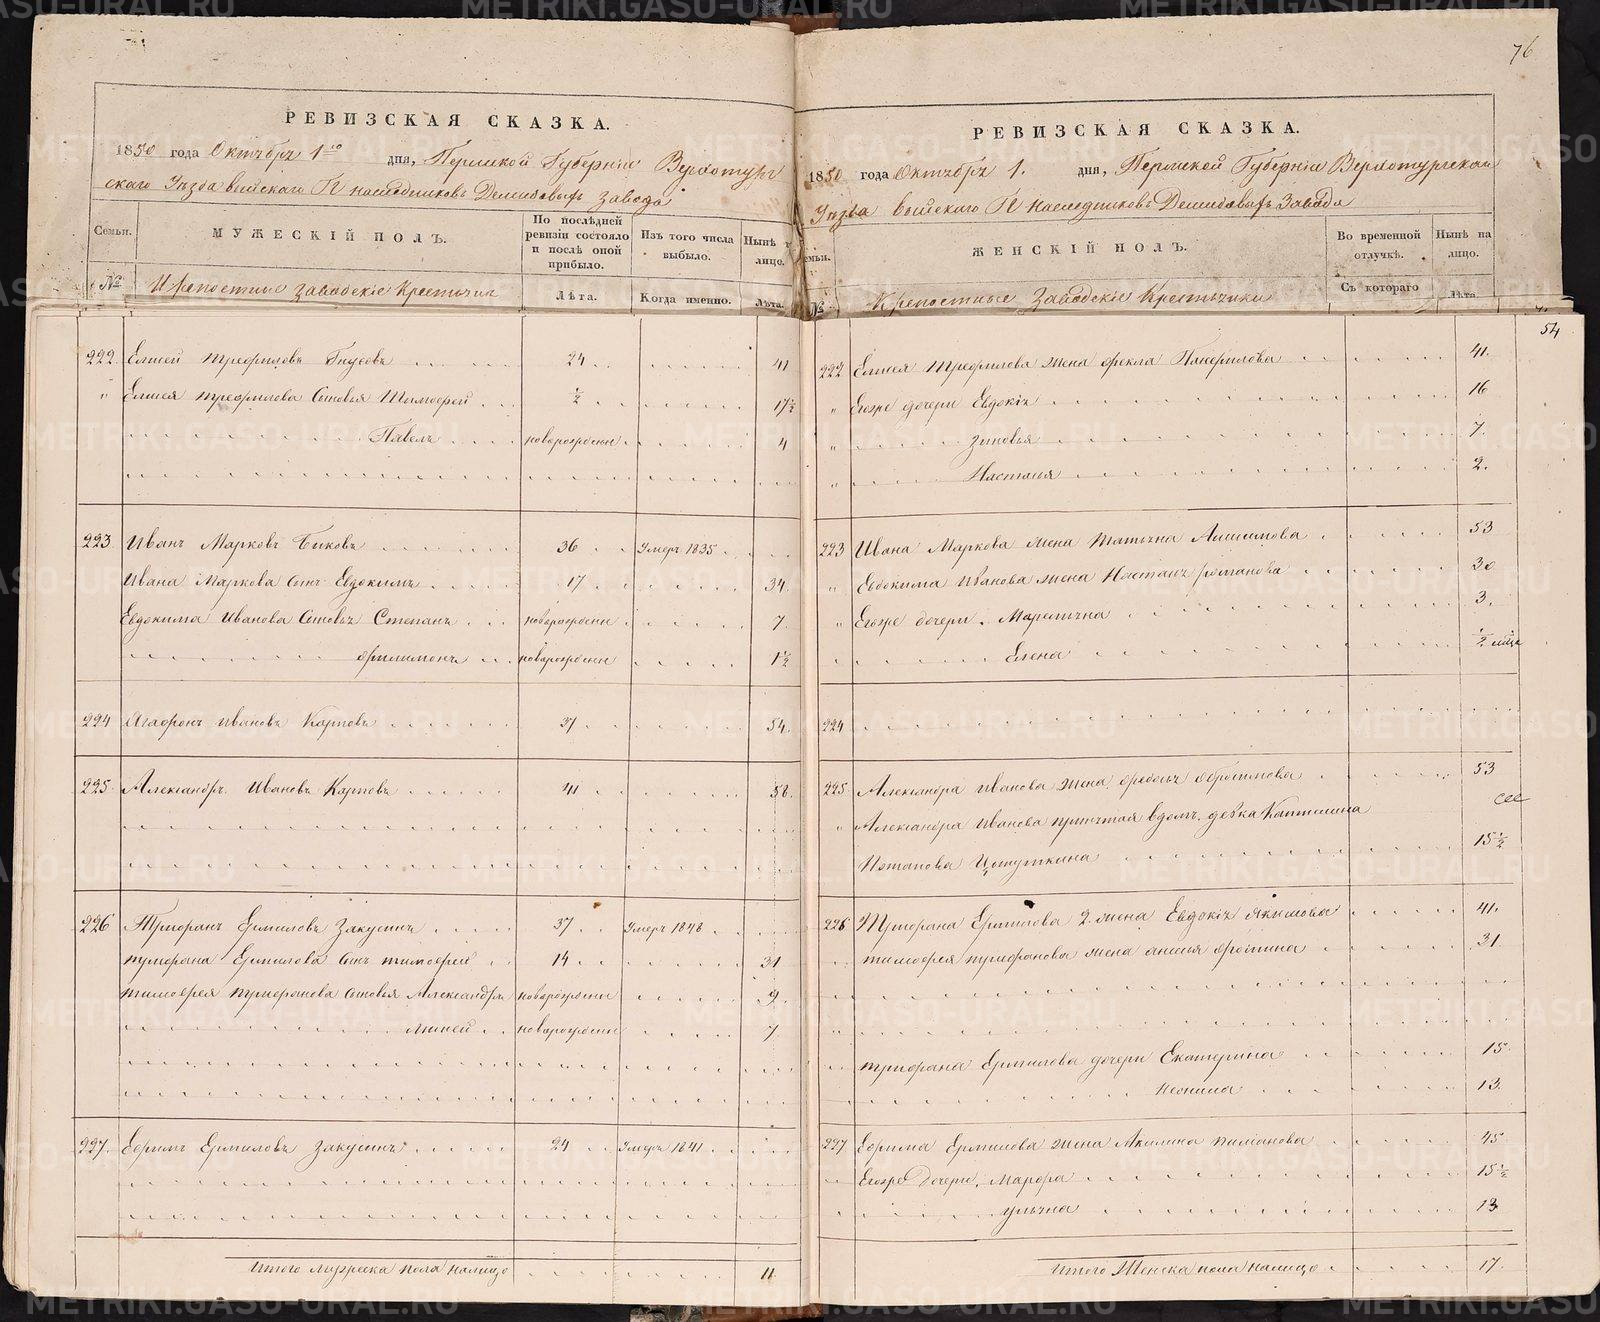 76
РЕВИЗСКАЯ СКАЗКА.
1850 года Октября 1го дня, Пермской Губернiи Верхотур
скаго Уѣзда Выйскаго Гг наслѣдниковъ Демидовыхъ завода
Семьи.
МУЖЕСКIЙ ПОЛЪ.
По послѣдней ревизiи состояло и послѣ оной прибыло.
Изъ того числа выбыло.
Нынѣ на лицо.
№
Крепостные заводскiе Крестьяня
Лѣта.
Когда именно.
Лѣта.
222 Елисей Трефиловъ Гнусовъ 24 41
" Елисея трефилова Сыновья Тимофей ½ 17½
Павелъ новорожденъ 4
223 Иванъ Марковъ Быковъ 36 Умеръ 1835
Ивана Маркова Сынъ Евдокимъ 17 34.
Евдокима Иванова Сыновья Степанъ новорожденъ 7
Филимонъ новорожденъ 1½
224 Агафонъ Ивановъ Карповъ 37 54.
225. Александръ Ивановъ Карповъ 41 58.
226 Трифанъ Ермиловъ Закусинъ 37 Умеръ 1848
трифана Ермилова Сынъ тимофей 14 31
тимофея трифанова Сыновья Александръ новорожденъ 9
новорожденъ 7
227. Ефимъ Ермиловъ Закусинъ 24 Умеръ 1841
Итого мужеска пола налицо 11
РЕВИЗСКАЯ СКАЗКА.
1850 года Октября 1. дня, Пермской Губернiи Верхотурскаго
Уѣзда Выйскаго Гг наслѣдниковъ Демидовыхъ Завода
Семьи.
ЖЕНСКIЙ ПОЛЪ.
Во временной отлучкѣ.
Нынѣ на лицо.
№
Крепостные Заводскiе Крестьянки
Съ котораго
Лѣта
54
222 Елисея Трефилова жена Фекла Панфилова 41.
" Егоже дочери Евдокiя 16
" Зиновья 7.
" Настасья 2.
223 Ивана Маркова жена Татьяна Анисимова 53
" Евдокима Иванова жена Настасья Романова 30
" Егоже дочери. Маремьяна 3.
Елена ½
224
225. Александра Иванова жена Федосья Абросимова 53
" Александра Иванова принятая вдомъ девка Капитолина
Потапова 15½
226 Трифана Ермилова 2. жена Евдокiя Якимова 41.
тимофея трифанова жена анисья Фомина 31
трифана Ермилова дочери Екатерина 15.
Неонила 13.
227 Ефима Ермилова жена Акилина 45
Егоже Дочери, Марфа 15½
ульяна 13
Итого Женска пола налицо 17.